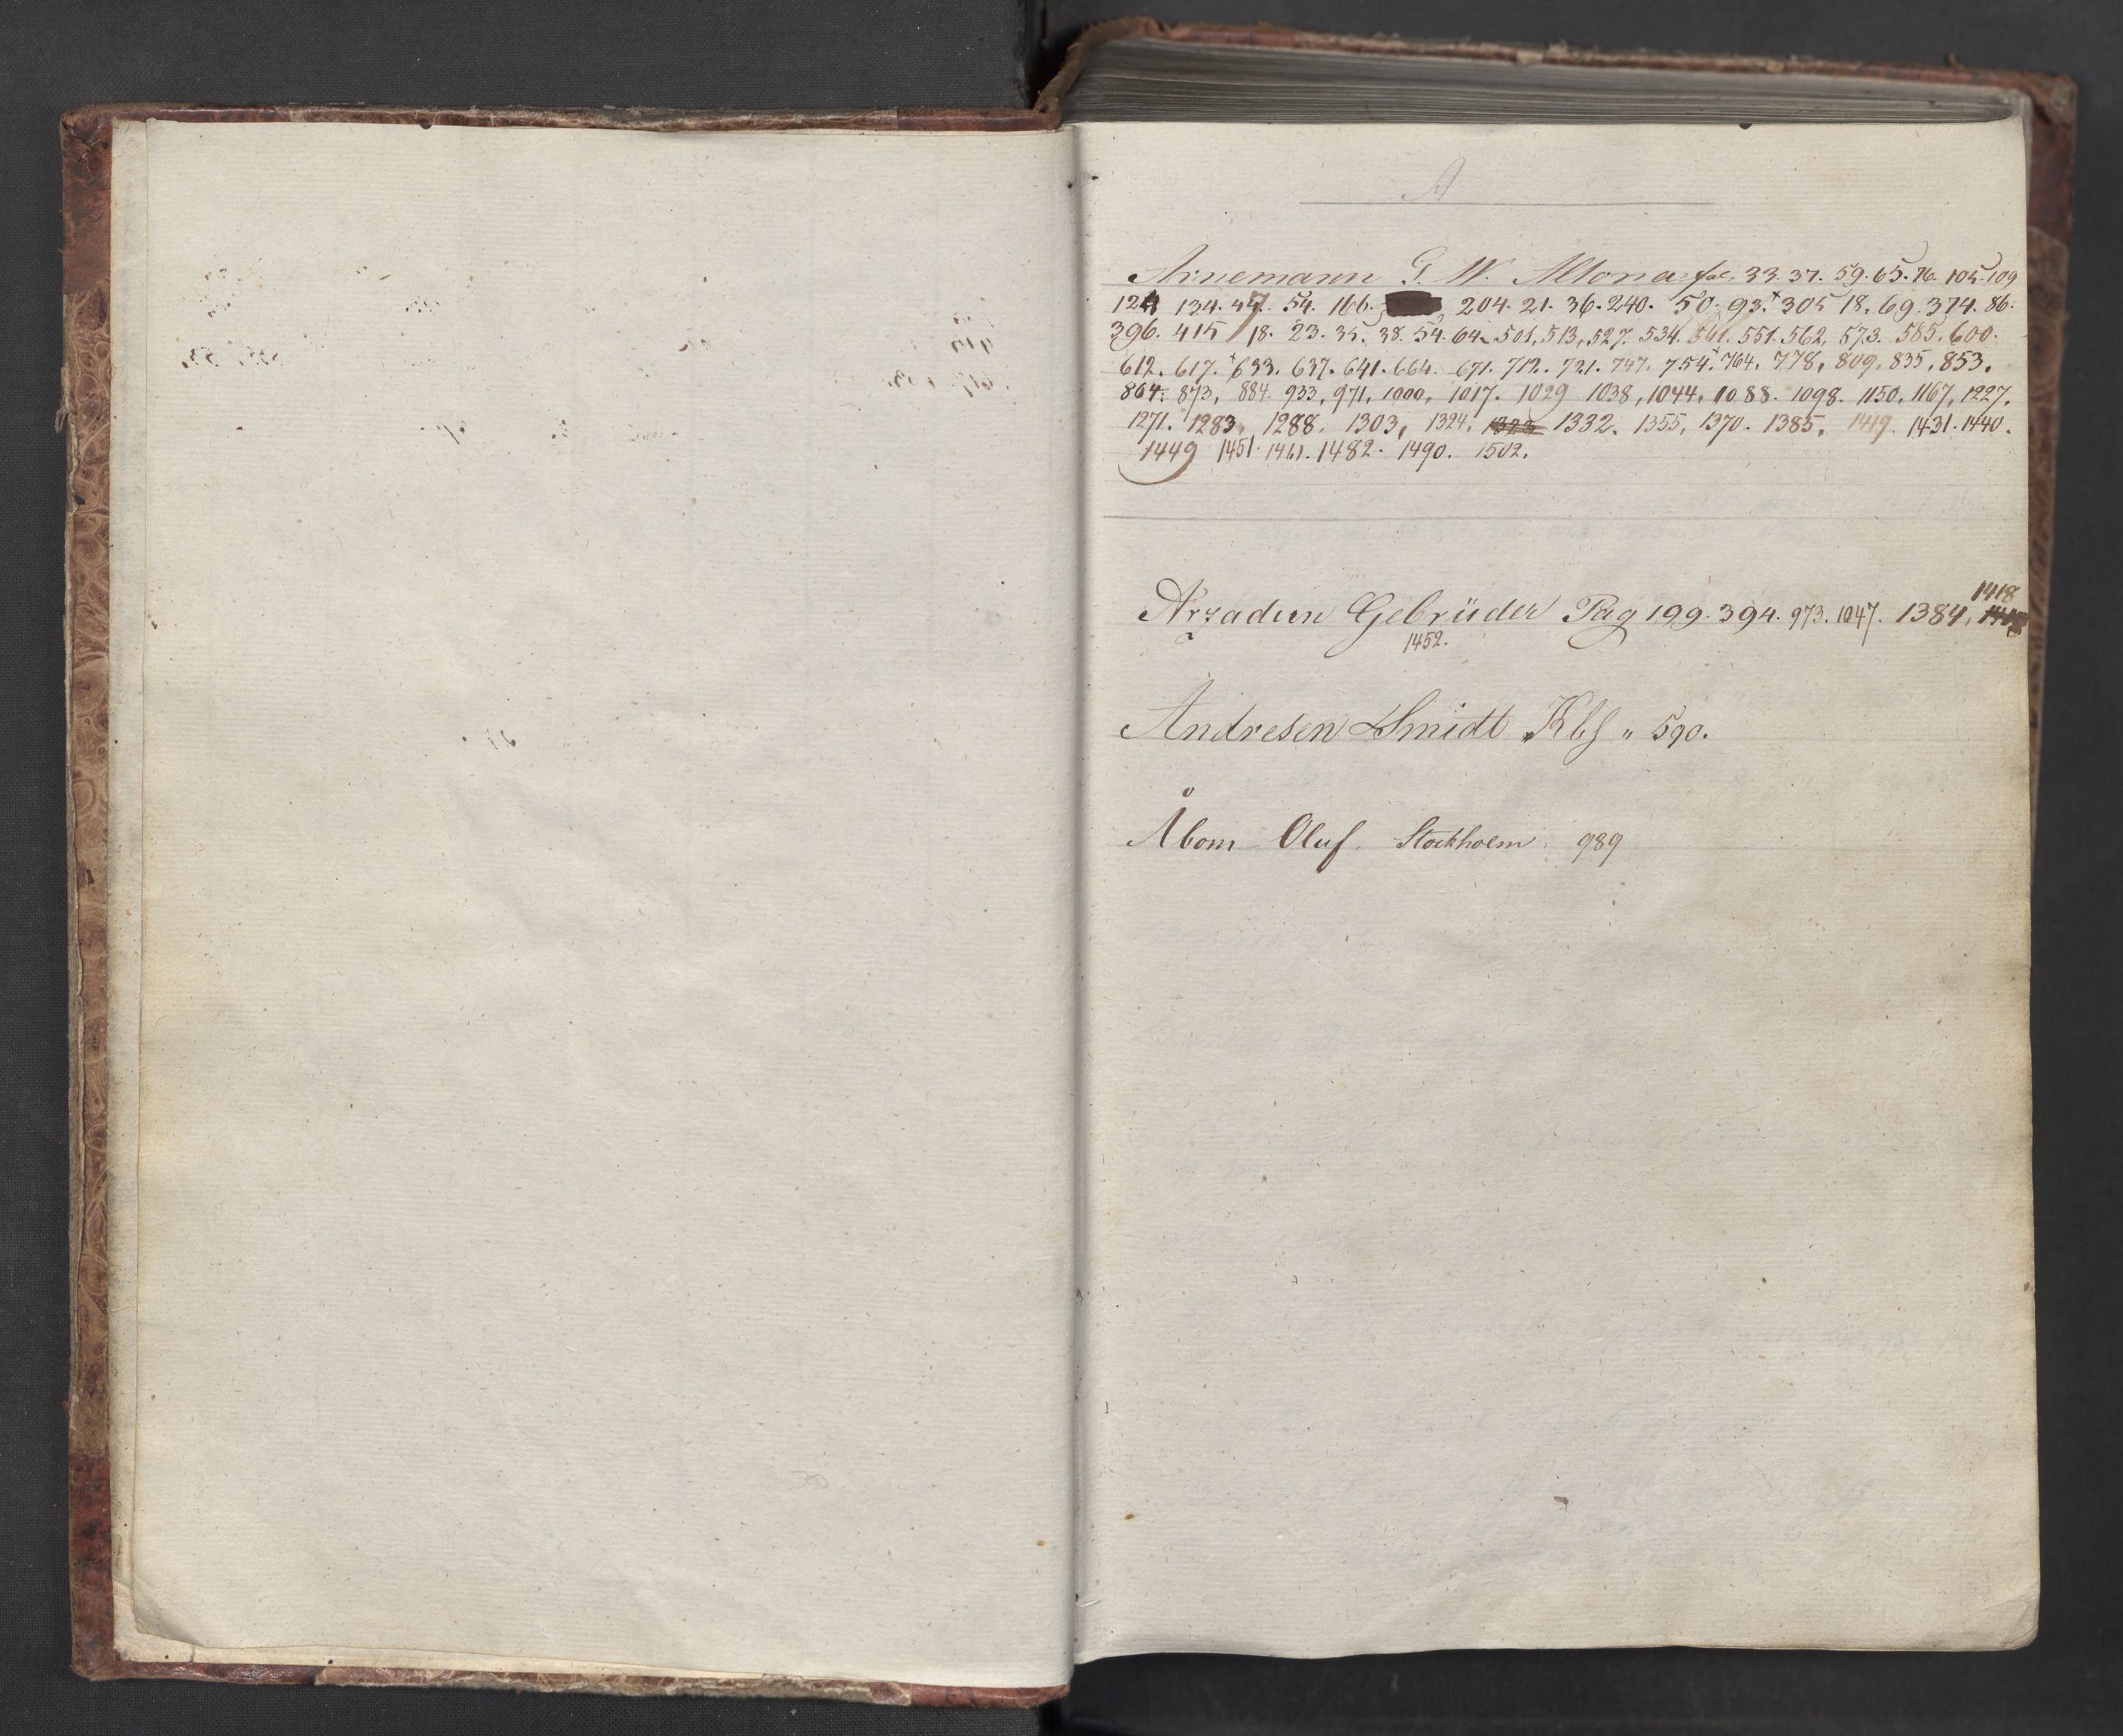 A
Arnemann G. W. Altona fol. 33. 37. 59. 65. 76. 105. 109
124 134. 47. 54. 166. 204. 21. 36. 240. 50. 93. 305 18. 69. 374. 86.
396. 415 18. 23. 35. 38. 54. 64. 501, 513, 527. 534. 541. 551. 562, 573. 585. 600.
612. 617. 633. 637. 641. 664. 671. 712. 721. 747. 754. 764. 778, 809. 835. 853.
864. 873, 884. 933, 971, 1000, 1017. 1029 1038, 1044, 1088. 1098. 1150, 1167, 1227.
1271. 1283, 1288. 1303, 1324, 1325 1332. 1355, 1370. 1385. 1419. 1431. 1440.
1449 1451. 1461. 1482. 1490. 1502.
1418
Arzadun Gebrüder Pag 199. 394. 973. 1047. 1384,
1452.
Andresen Smidt Kbh " 590.
Åbom Oluf. Stockholm 989